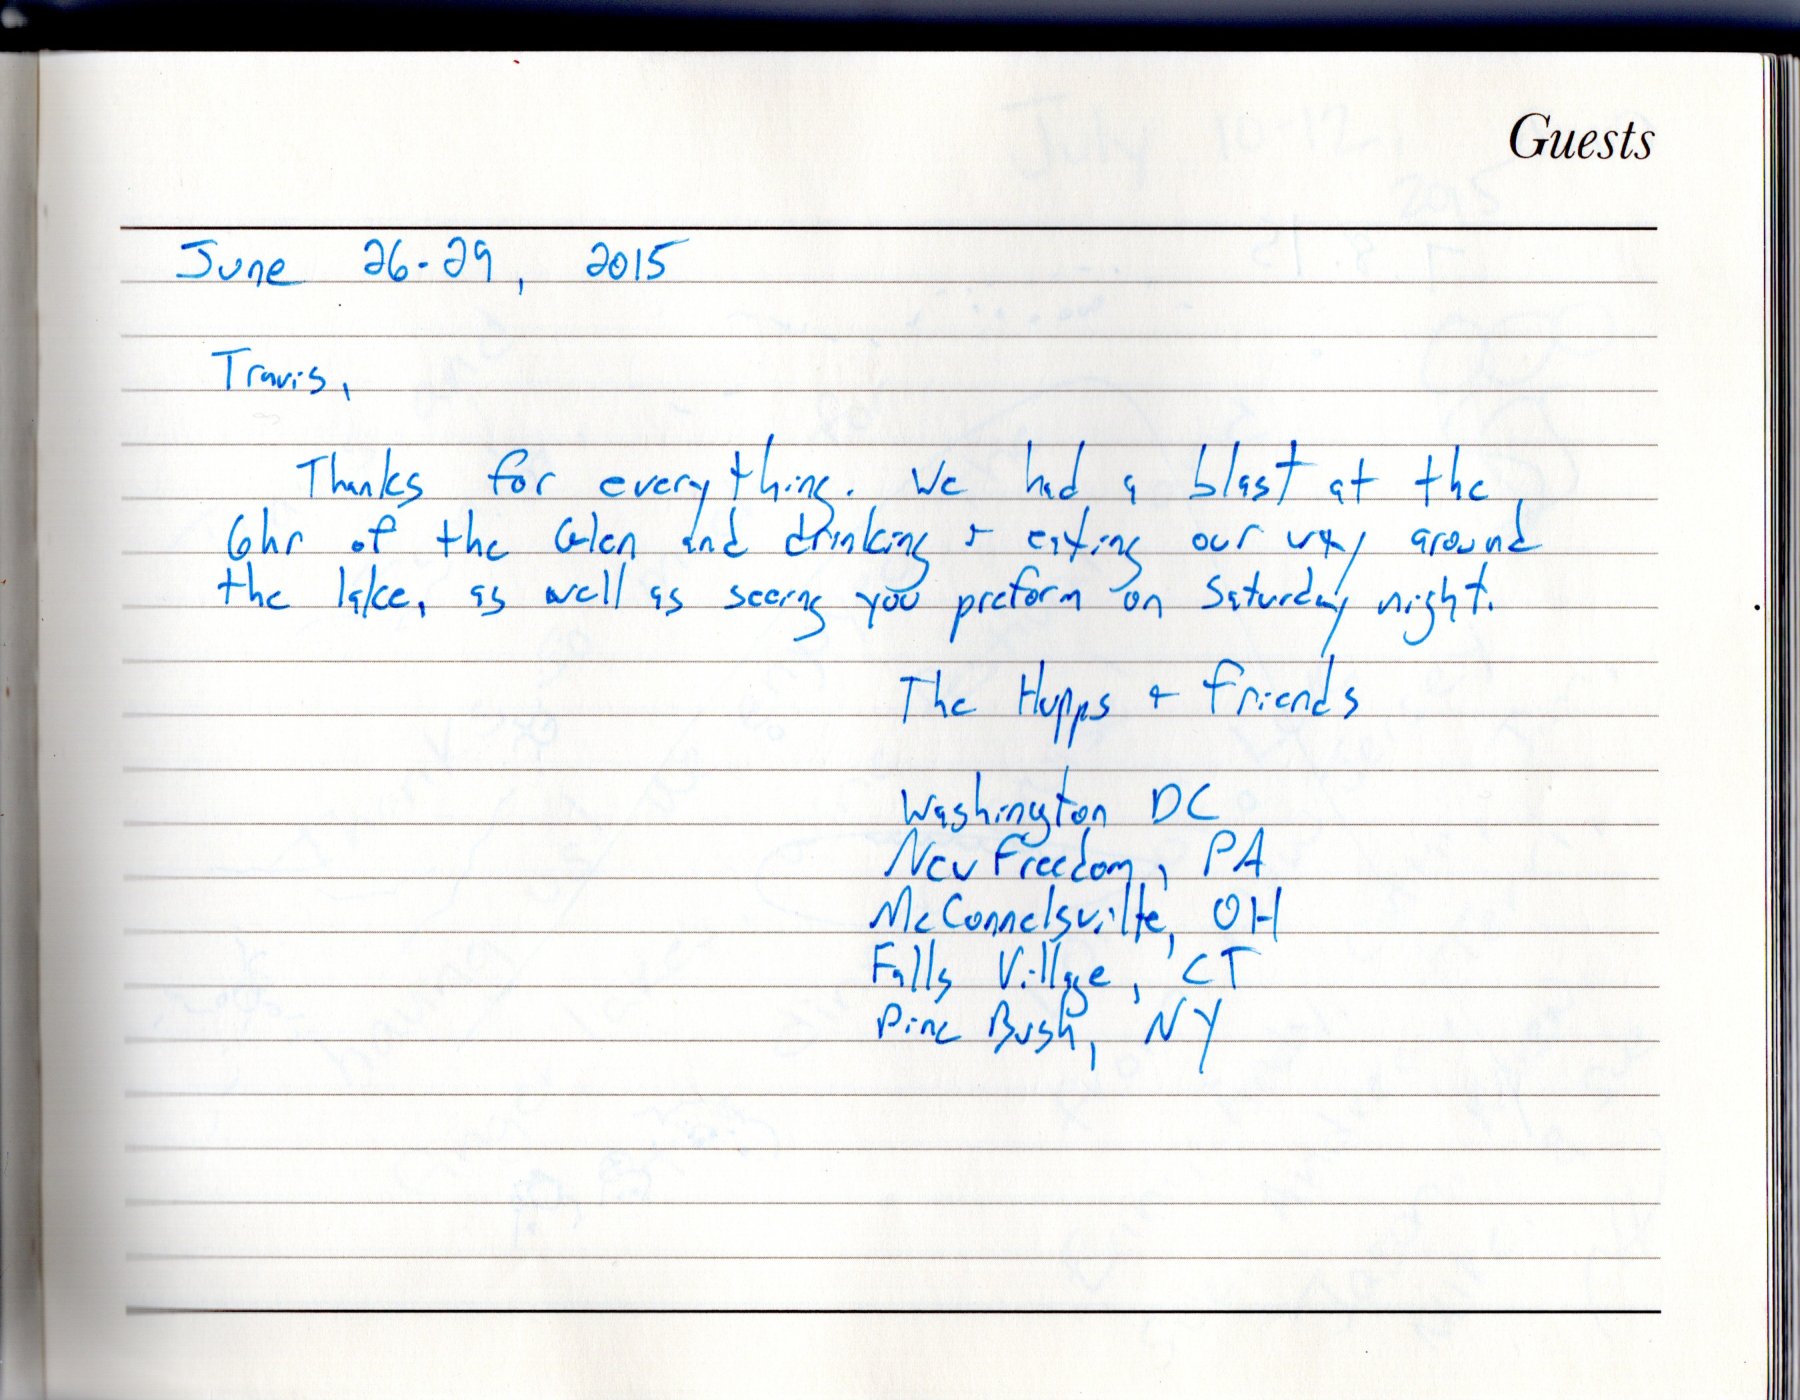 Guests
June 26-29, 2015
Travis,
Thanks for everything. We had a blast at the
6hr of the Glen and drinking + eating our way around
the lake, as well as seeing you preform on Saturday night.
The Hupps + Friends
Washington DC
New Freedom, PA
McConnelsville, OH
Falls Village, CT
Pine Bush, NY